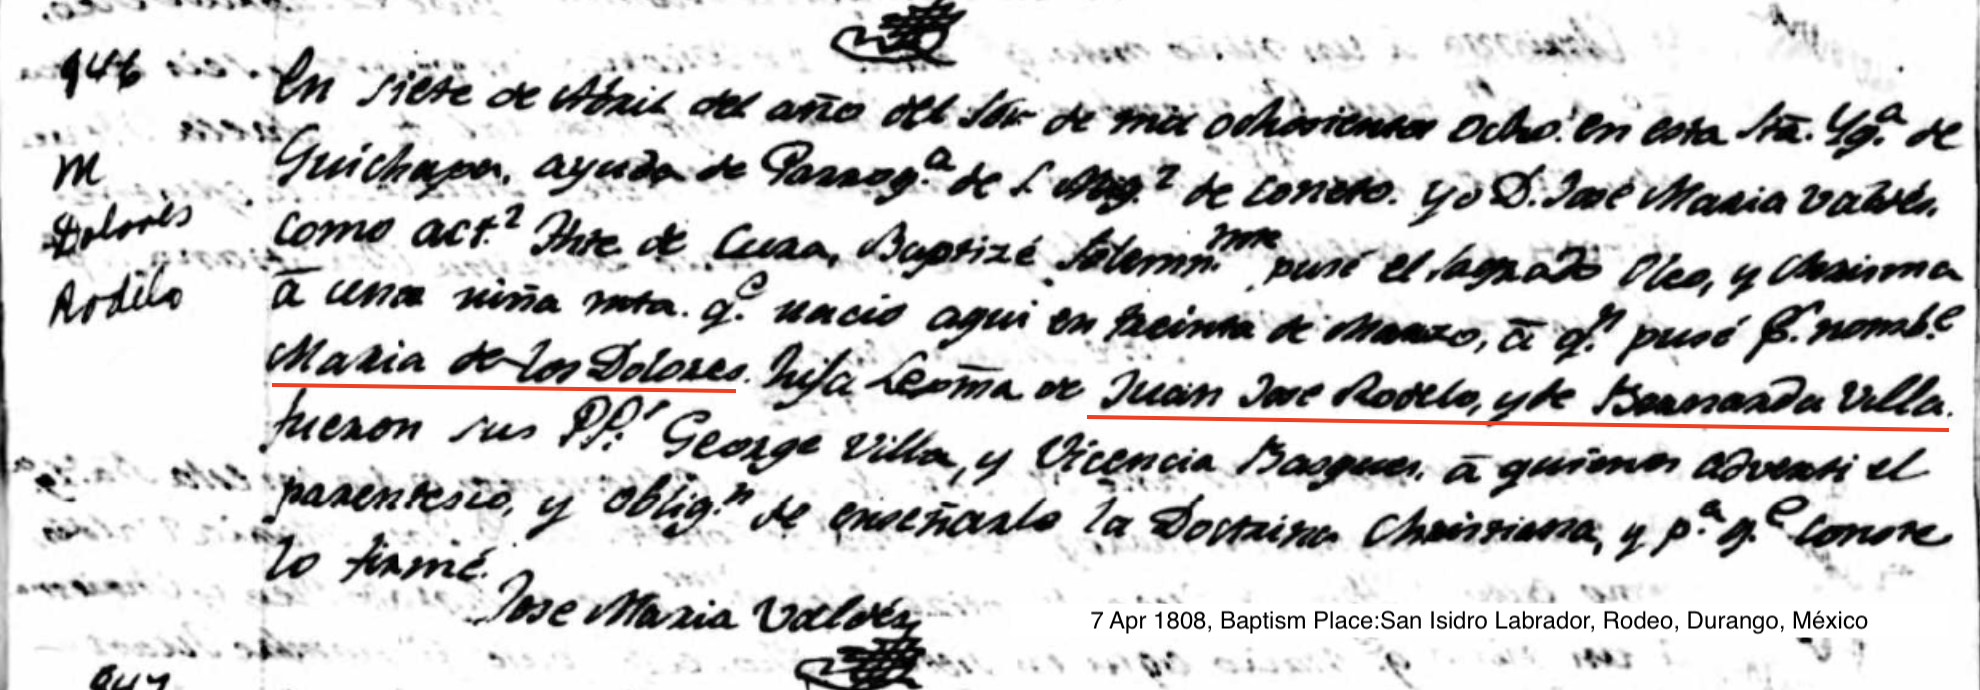 946
M
Dolores
Rodelo
En siete de Abril del año del Sōr de mil ochocientos ocho: en esta Stā. Yg.ª de
Guichapa, ayuda de Parroq.ª de S. Mig.l de Coneto. yo D. José Maria Valdés,
como act.l Thte de Cura, Baptizé solemn.mte pusé el sagrado Oleo, y Chrisma
ā una niña mta. q.e nacio aqui en treinta de Marzo, ā q.n pusé p.r nomb.e
Maria de los Dolores. hija Lexma de Juan José Rodelo, y de Bernarda Villa.
fueron sus PP.s George Villa, y Vicencia Basques. ā quienes adverti el
parentesco, y oblig.n de enseñarlo la Doctrina Christiana, y p.a q.e conste
lo firmé.
Jose Maria Valdés
7 Apr 1808, Baptism Place:San Isidro Labrador, Rodeo, Durango, México
947